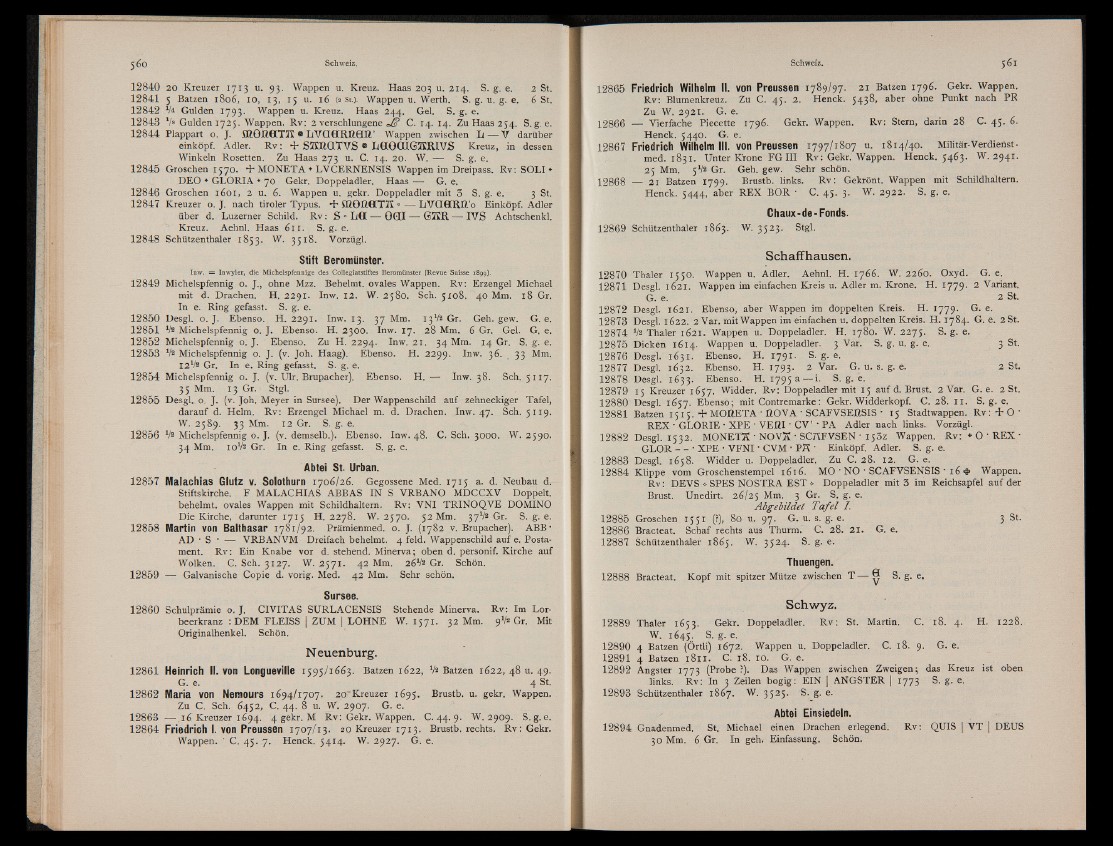 560
Schweiz.
12840 20 Kreuzer 1713 u. 93. Wappen u. Kreuz. Haas 203 u. 214. S. g. e. 2 St.
12841 5 Batzen 1806, 10, 13, 15 u. 16 (2 St.). Wappen u. Werth. S. g. u. g. e. 6 St.
12842 1/4 Gulden 1793. Wappen u. Kreuz. Haas 244. Gel. S. g. e.
12843 Gulden 1725. Wappen. Rv: 2 verschlungene C. 14. 14. Zu Haas 254. S. g. e.
12844 Plappart o. J. Wappen zwischen L — V darüber
einköpf. Adler. Rv: + Kreuz, in dessen
Winkeln Rosetten. Zu Haas 273 u. C. 14. 20. W. — S. g. e.
12845 Groschen 1570. + MONETA • LVCERNENSIS Wappen im Dreipass. Rv: SOLI •
DEO • GLORIA • 70 Gekr. Doppeladler. Haas — G. e.
12846 Groschen 1601, 2 u. 6. Wappen u. gekr. Doppeladler mit 3 S. g. e. 3 St.
12847 Kreuzer o. J. nach tiroler Typus. Einköpf. Adler
über d. Luzerner Schild. Rv: Achtschenkl.
Kreuz. Aehnl. Haas 611. S. g. e.
12848 Schützenthaler 1853. W. 3518. Vorzügl.
Stift Beromünster.
Inw. = Inwyler, die Michelspfennige des Collegiatstiftes Beromünster (Revue Suisse 1899).
12849 Michelspfennig o. J., ohne Mzz. Behelmt. ovales Wappen. Rv: Erzengel Michael
mit d. Drachen. H. 2291. Inw. 12. W. 2580. Sch. 5108. 40 Mm. 18 Gr.
In e. Ring gefasst. S. g. e.
12850 Desgl. o. J. Ebenso. H. 2291. Inw. 13. 37 Mm. 13 1/2 Gr. Geh. gew. G. e.
12851 1/2 Michelspfennig o. J. Ebenso. H. 2300. Inw. 17. 28 Mm. 6 Gr. Gel. G. e.
12852 Michelspfennig o. J. Ebenso. Zu H. 2294. Inw. 21. 34 Mm. 14 Gr. S. g. e.
12853 1/2 Michelspfennig o. J. (v. Joh. Haag). Ebenso. H. 2299. Inw. 36. 33 Mm.
12 1/2 Gr. In e. Ring gefasst. S. g. e.
12854 Michelspfennig o. J. (v. Ulr. Brupacher). Ebenso. H. — Inw. 38. Sch. 5117.
35 Mm. 13 Gr. Stgl.
12855 Desgl. o. J. (v. Joh. Meyer in Sursee). Der Wappenschild auf zehneckiger Tafel,
darauf d. Helm. Rv: Erzengel Michael m. d. Drachen. Inw. 47. Sch. 5119.
W. 2589. 33 Mm. 12 Gr. S. g. e.
12856 1/2 Michelspfennig o. J. (v. demselb.). Ebenso. Inw. 48. C. Sch. 3000. W. 2590.
34 Mm. 10 1/2 Gr. In e. Ring gefasst. S. g. e.
Abtei St. Urban.
12857 Malachias Glutz v. Solothurn 1706/26. Gegossene Med. 1715 a. d. Neubau d.
Stiftskirche. F MALACHIAS ABBAS IN S VRBANO MDCCXV Doppelt.
behelmt. ovales Wappen mit Schildhaltern. Rv: VNI TRINOQVE DOMINO
Die Kirche, darunter 1715 H. 2278. W. 2570. 52 Mm. 37 1/2 Gr. S. g. e.
12858 Martin von Balthasar 1781/92. Prämienmed. o. J. (1782 v. Brupacher). ABB•
AD • S • — VRBANVM Dreifach behelmt. 4 feld. Wappenschild auf e. Posta-
ment. Rv: Ein Knabe vor d. stehend. Minerva; oben d. personif. Kirche auf
Wolken. C. Sch. 3127. W. 2571. 42 Mm. 26 1/2 Gr. Schön.
12859 — Galvanische Copie d. vorig. Med. 42 Mm. Sehr schön.
Sursee.
12860 Schulprämie o. J. CIVITAS SURLACENSIS Stehende Minerva. Rv: Im Lor-
beerkranz : DEM FLEISS | ZUM | LOHNE W. 1571. 32 Mm. 9 1/2 Gr. Mit
Originalhenkel. Schön.
Neuenburg.
12861 Heinrich II. von Longueville 1595/1663. Batzen 1622, 1/2 Batzen 1622, 48 u. 49.
G. e. 4 St.
12862 Maria von Nemours 1694/1707. 20 Kreuzer 1695. Brustb. u. gekr. Wappen.
Zu C. Sch. 6452, C. 44. 8 u. W. 2907. G. e.
12863 — 16 Kreuzer 1694. 4 gekr. M Rv: Gekr. Wappen. C. 44. 9. W. 2909. S. g. e.
12864 Friedrich I. von Preussen 1707/13. 20 Kreuzer 1713. Brustb. rechts. Rv: Gekr.
Wappen. C. 45. 7. Henck. 5414. W. 2927. G. e.
Schweiz.
561
12865 Friedrich Wilhelm II. von Preussen 1789/97. 21 Batzen 1796. Gekr. Wappen.
Rv: Blumenkreuz. Zu C. 45. 2. Henck. 5438, aber ohne Punkt nach PR
Zu W. 2921. G. e.
12866 — Vierfache Piecette 1796. Gekr. Wappen. Rv: Stern, darin 28 C. 45. 6.
Henck. 5440. G. e.
12867 Friedrich Wilhelm III. von Preussen 1797/1807 u. 1814/40. Militär-Verdienst-
med. 1831. Unter Krone FG III Rv: Gekr. Wappen. Henck. 5463. W. 2941.
25 Mm. 5 1/2 Gr. Geh. gew. Sehr schön.
12868 — 21 Batzen 1799. Brustb. links. Rv: Gekrönt. Wappen mit Schildhaltern.
Henck. 5444, aber REX BOR • C. 45. 3. W. 2922. S. g. e.
Chaux-de-Fonds.
12869 Schützenthaler 1863. W. 3523. Stgl.
Schaffhausen.
12870 Thaler 1550. Wappen u. Adler. Aehnl. H. 1766. W. 2260. Oxyd. G. e.
12871 Desgl. 1621. Wappen im einfachen Kreis u. Adler m. Krone. H. 1779. 2 Variant.
G. e. 2 St.
12872 Desgl. 1621. Ebenso, aber Wappen im doppelten Kreis. H. 1779. G. e.
12873 Desgl. 1622. 2 Var. mit Wappen im einfachen u. doppelten Kreis. H. 1784. G. e. 2 St.
12874 1/2 Thaler 1621. Wappen u. Doppeladler. H. 1780. W. 2275. S. g. e.
12875 Dicken 1614. Wappen u. Doppeladler. 3 Var. S. g. u. g. e. 3 St.
12876 Desgl. 1631. Ebenso. H. 1791. S. g. e.
12877 Desgl. 1632. Ebenso. H. 1793. 2 Var. G. u. s. g. e. 2 St.
12878 Desgl. 1633. Ebenso. H. 1795 a — i. S. g. e.
12879 15 Kreuzer 1657. Widder. Rv: Doppeladler mit 15 auf d. Brust. 2 Var. G. e. 2 St.
12880 Desgl. 1657. Ebenso; mit Contremarke: Gekr. Widderkopf. C. 28. 11. S. g. e.
12881 Batzen 1515. + MONETA • NOVA • SCAFVSENSIS • 15 Stadtwappen. Rv: + O •
REX • GLORIE • XPE • VENI • CV' • PA Adler nach links. Vorzügl.
12882 Desgl. 1532. MONETA • NOVA • SCAFVSEN • 153z Wappen. Rv: • O • REX •
GLOR – – • XPE • VFNI • CVM • PA • Einköpf. Adler. S. g. e.
12883 Desgl. 1658. Widder u. Doppeladler. Zu C. 28. 12. G. e.
12884 Klippe vom Groschenstempel 1616. MO • NO • SCAFVSENSIS • 16 Wappen.
Rv: DEVS ∘ SPES NOSTRA EST ∘ Doppeladler mit 3 im Reichsapfel auf der
Brust. Unedirt. 26/25 Mm. 3 Gr. S. g. e.
Abgebildet Tafel I.
12885 Groschen 1551 (?), 80 u. 97. G. u. s. g. e. 3 St.
12886 Bracteat. Schaf rechts aus Thurm. C. 28. 21. G. e.
12887 Schützenthaler 1865. W. 3524. S. g. e.
Thuengen.
12888 Bracteat. Kopf mit spitzer Mütze zwischen T — S. g. e.
Schwyz.
12889 Thaler 1653. Gekr. Doppeladler. Rv: St. Martin. C. 18. 4. H. 1228.
W. 1645. S. g. e.
12890 4 Batzen (Örtli) 1672. Wappen u. Doppeladler. C. 18. 9. G. e.
12891 4 Batzen 1811. C. 18. 10. G. e.
12892 Angster 1773 (Probe ?). Das Wappen zwischen Zweigen; das Kreuz ist oben
links. Rv: In 3 Zeilen bogig: EIN | ANGSTER | 1773 S. g. e.
12893 Schützenthaler 1867. W. 3525. S. g. e.
Abtei Einsiedeln.
12894 Gnadenmed. St. Michael einen Drachen erlegend. Rv: QUIS | VT | DEUS
30 Mm. 6 Gr. In geh. Einfassung. Schön.